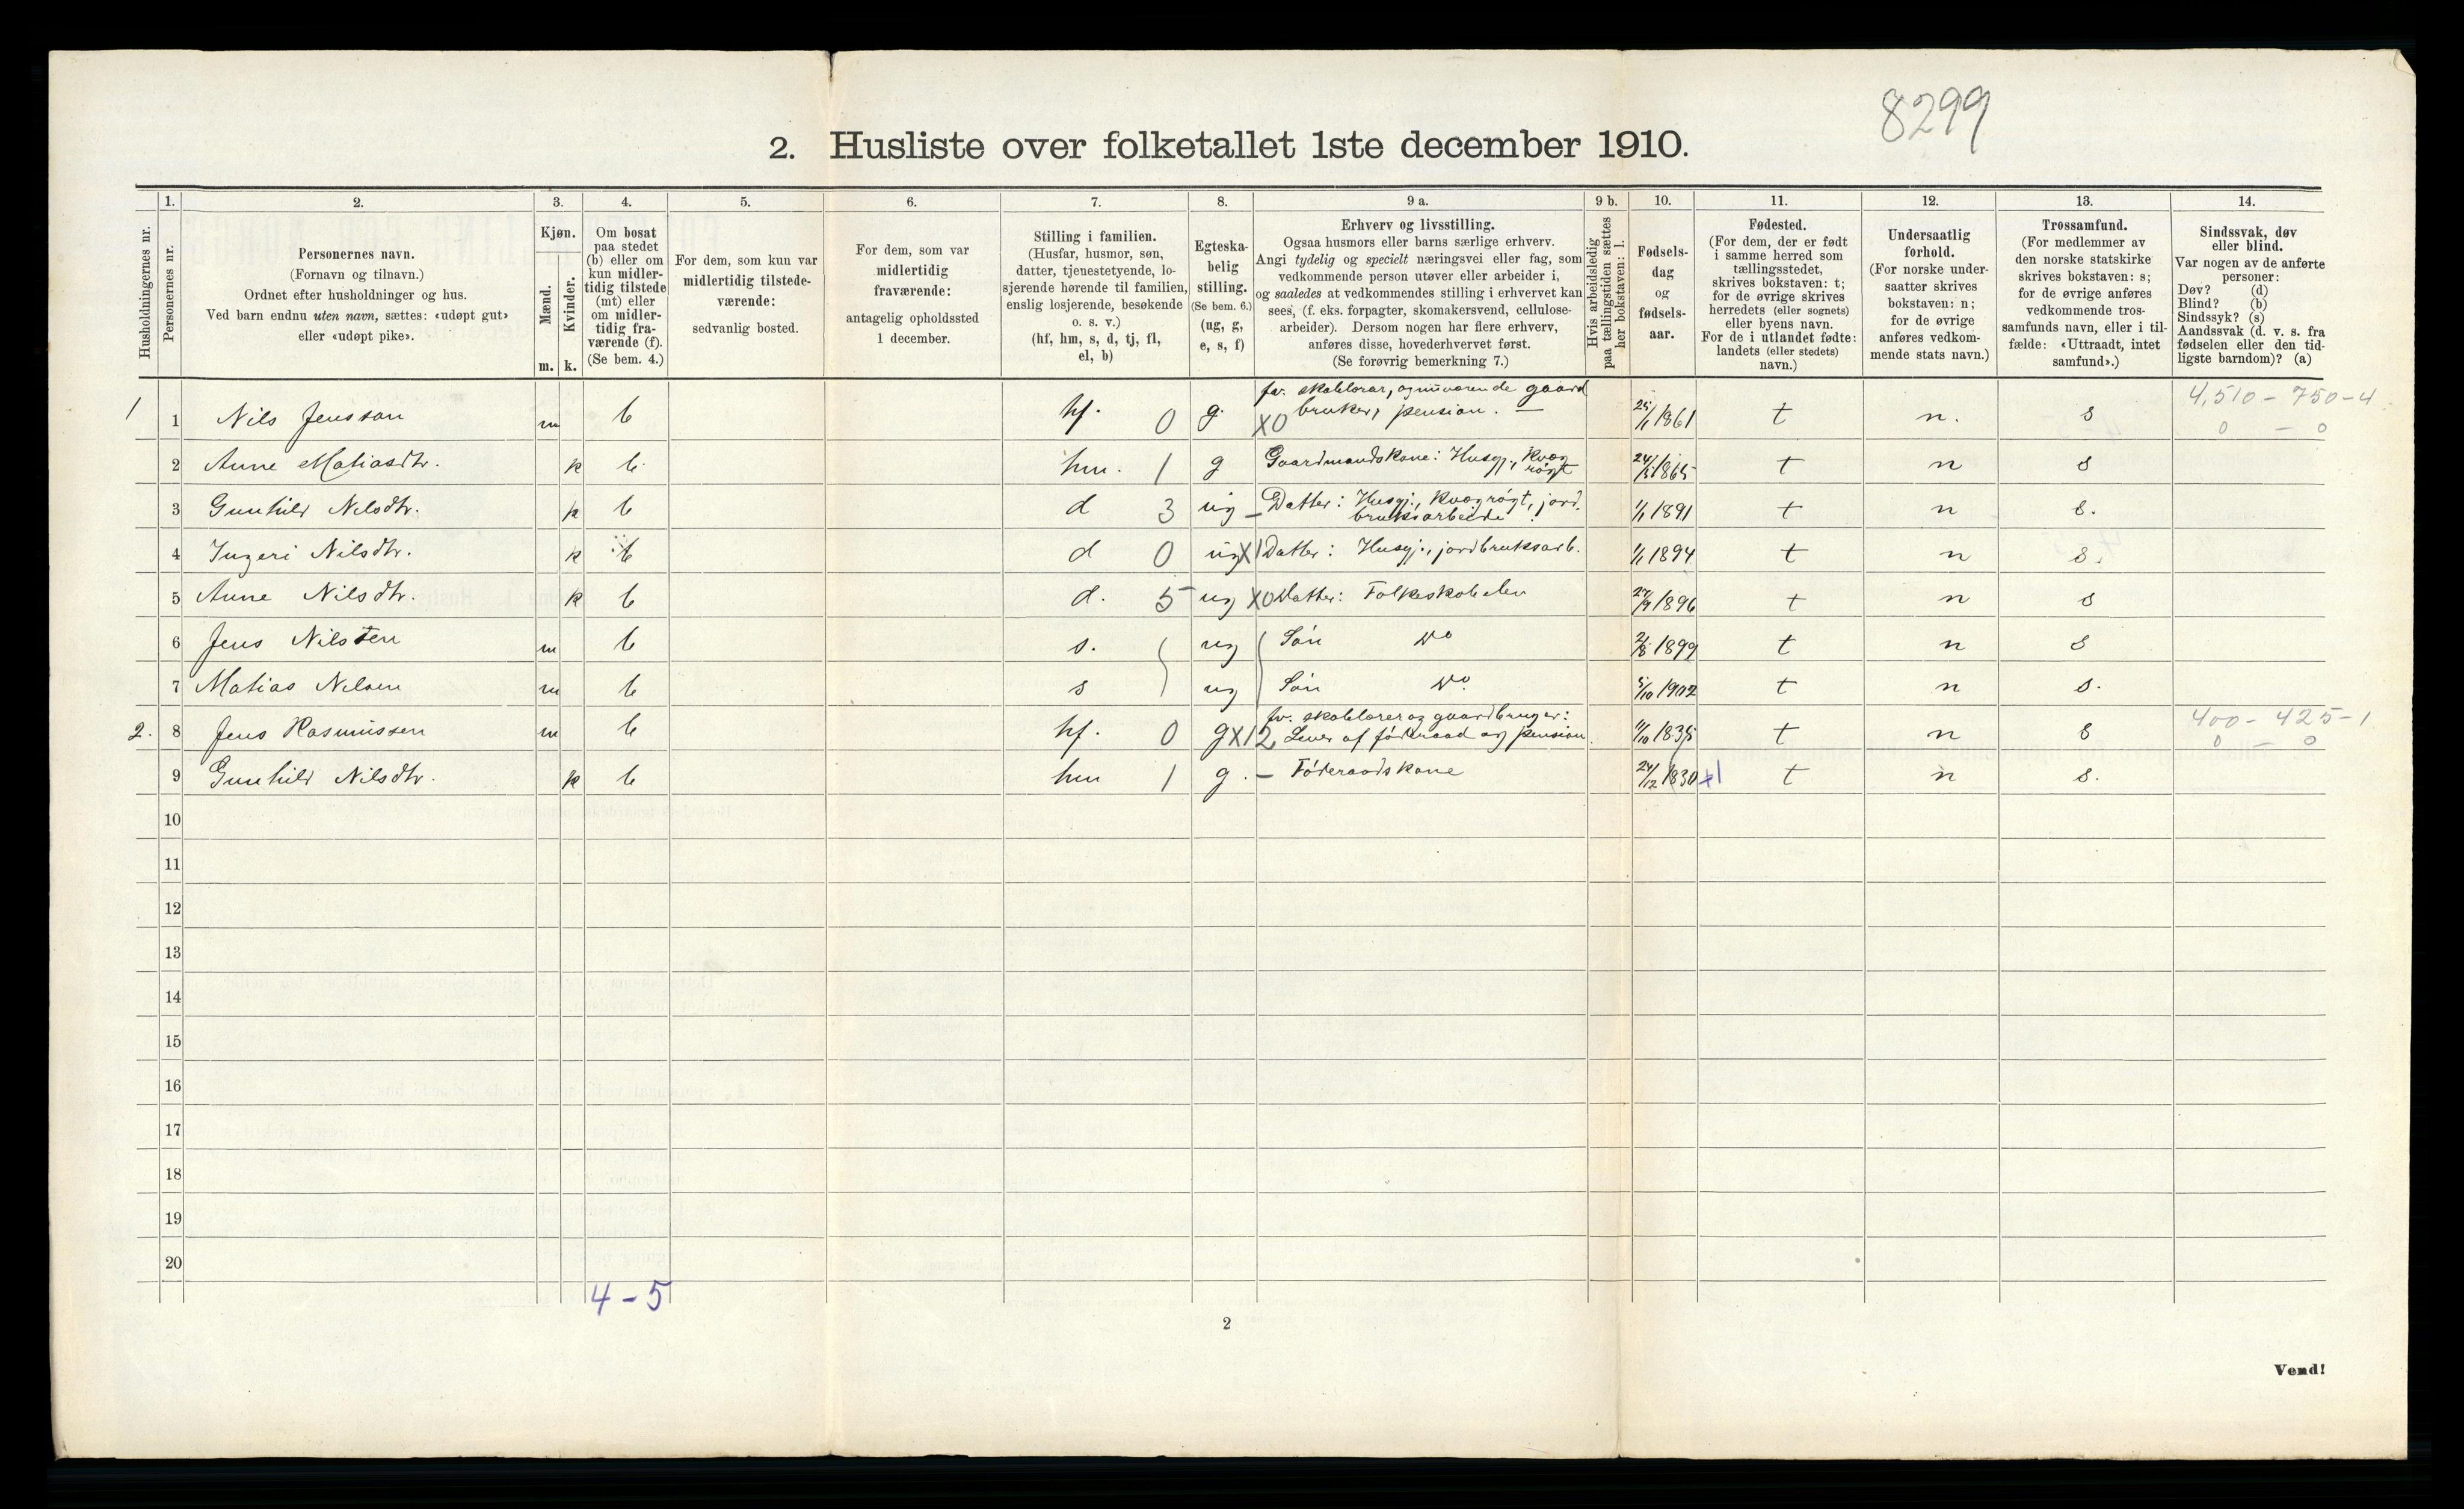 8299
2. Husliste over folketallet 1ste december 1910.
Husholdningernes nr.
1.
Personernes nr.
2.
Personernes navn.
(Fornavn og tilnavn.)
Ordnet efter husholdninger og hus.
Ved barn endnu uten navn, sættes: «udøpt gut»
eller «udøpt pike».
3.
Kjøn.
Mænd.
Kvinder.
m. k.
4.
Om bosat
paa stedet
(b) eller om
kun midler-
tidig tilstede
(mt) eller
om midler-
tidig fra-
værende (f).
(Se bem. 4.)
5.
For dem, som kun var
midlertidig tilstede-
værende:
sedvanlig bosted.
6.
For dem, som var
midlertidig
fraværende:
antagelig opholdssted
1 december.
7.
Stilling i familien.
(Husfar, husmor, søn,
datter, tjenestetyende, lo-
sjerende hørende til familien,
enslig losjerende, besøkende
o. s. v.)
(hf, hm, s, d, tj, fl,
el, b)
8.
Egteska-
belig
stilling.
(Se bem. 6.)
(ug, g,
e, s, f)
9 a.
Erhverv og livsstilling.
Ogsaa husmors eller barns særlige erhverv.
Angi tydelig og specielt næringsvei eller fag, som
vedkommende person utøver eller arbeider i,
og saaledes at vedkommendes stilling i erhvervet kan
sees, (f. eks. forpagter, skomakersvend, cellulose-
arbeider). Dersom nogen har flere erhverv,
anføres disse, hovederhvervet først.
(Se forøvrig bemerkning 7.)
9 b.
Hvis arbeidsledig
paa tællingstiden sættes
her bokstaven: l.
10.
Fødsels-
dag
og
fødsels-
aar.
11.
Fødested.
(For dem, der er født
i samme herred som
tællingsstedet,
skrives bokstaven: t;
for de øvrige skrives
herredets (eller sognets)
eller byens navn.
For de i utlandet fødte:
landets (eller stedets)
navn.)
12.
Undersaatlig
forhold.
(For norske under-
saatter skrives
bokstaven: n;
for de øvrige
anføres vedkom-
mende stats navn.)
13.
Trossamfund.
(For medlemmer av
den norske statskirke
skrives bokstaven: s;
for de øvrige anføres
vedkommende tros-
samfunds navn, eller i til-
fælde: «Uttraadt, intet
samfund».)
14.
Sindssvak, døv
eller blind.
Var nogen av de anførte
personer:
Døv? (d)
Blind? (b)
Sindssyk? (s)
Aandssvak (d. v. s. fra
fødselen eller den tid-
ligste barndom)? (a)
1 1 Nils Jensson m b hf. 0 g. X0 fv. skolelærar, og nuværende gaard
bruker, pension. — 25/1 1861 t n. s 4,510 - 750 - 4
0 - 0
2 Anne Matiasdtr. k b hm. 1 g Gaardmandskone: Husgj., kvæg
røgt 1865 t n s
3 Gunhild Nilsdtr. k b d 3 ug — Datter: Husgj., kvægrøgt, jord.
bruksarbeide 1/1 1891 t n s.
4 Ingeri Nilsdtr. k b d 0 ug X1 Datter: Husgj., jordbruksarb. 1/1 1894 t n s.
5 Anne Nilsdtr. k b d. 5 ug X0 Datter: Folkeskolelev 27/9 1896 t n s
6 Jens Nilssen m b s. ug Søn do 1899 t n s
7 Matias Nilsen m b s ug Søn do. 5/10 1902 t n s.
2. 8 Jens Rasmussen m b hf. 0 g X12 fv. skolelærer og gaardbruger:
Lever af føderaad og pension. 1835 t n s 400 - 425 - 1
0 - 0
9 Gunhild Nilsdtr. k b hm 1 g. — Føderaadskone 24/12 1830 x1 t n s.
10
11
12
13
14
15
16
17
18
19
20
4 - 5
2
Vend!